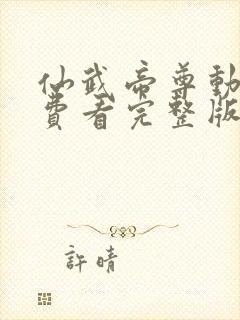 仙武帝尊動
費看完整版
許晴